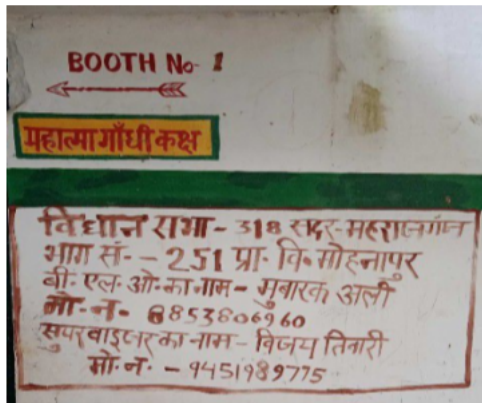 BOOTH No- 1
महात्मा गाँधी कक्ष
विधान सभा - 318 सदर-महराजगंज
भाग सं. - 251 प्रा. वि. मोहनापुर
बी. एल. ओ. का नाम - मुबारक अली
मो. न. 8853806960
सुपरवाइजर का नाम - विजय तिवारी
मो. न. - 9451989775